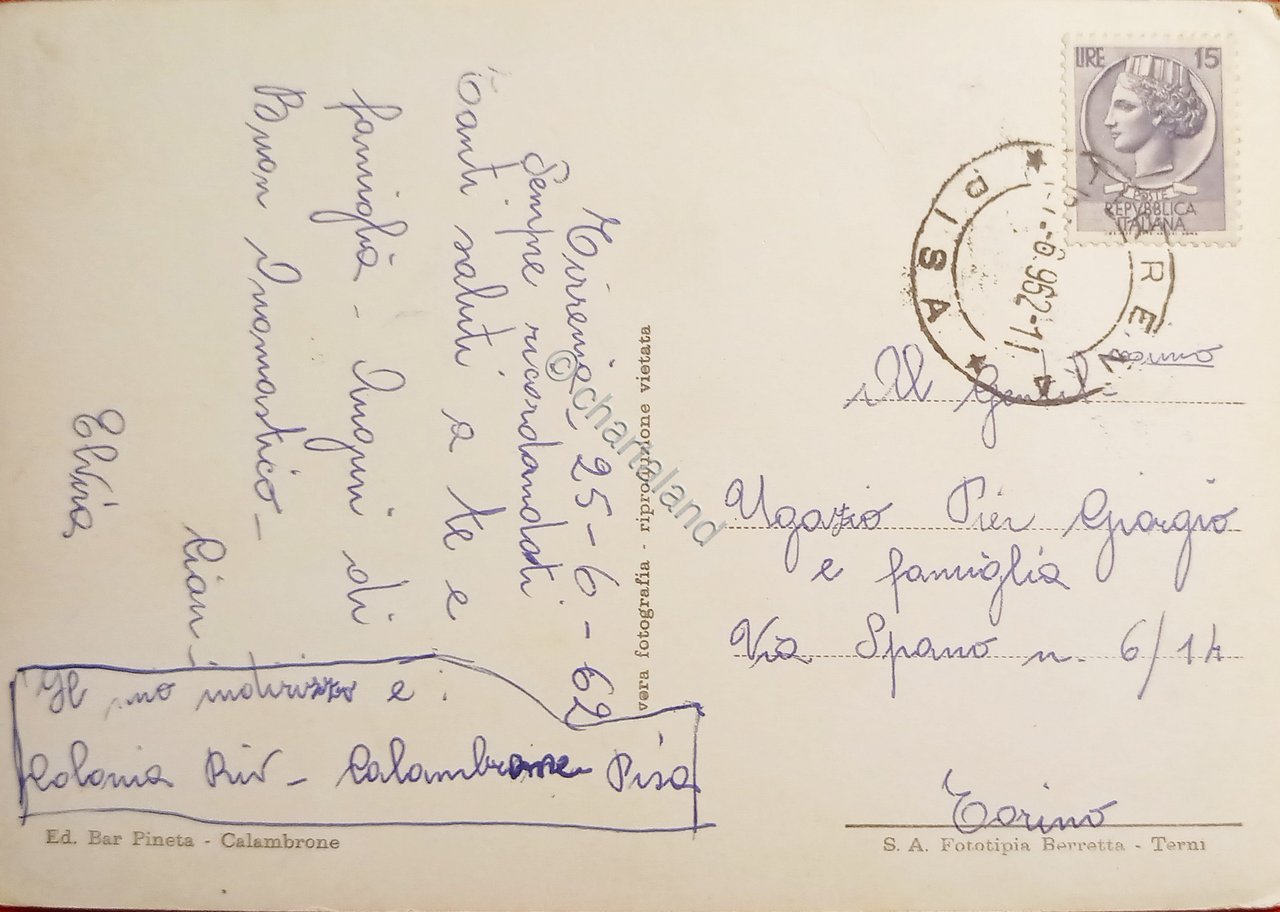 Tirrenia 25-6-62
Sempre ricordandoti
Tanti saluti a te e
famiglia - Auguri di
Buon Onomastico -
Cian -
Elvira
Il mio indirizzo è:
Colonia Riv - Calambrone Pisa
Ed. Bar Pineta - Calambrone
vera fotografia - riproduzione vietata
© chartaland
LIRE 15
POSTE
REPVBBLICA
ITALIANA
TIRRENIA
PISA
-6.962-11
Al Gentil-issimo
Ugazio Pier Giorgio
e famiglia
Via Spano n. 6/14
Torino
S. A. Fototipia Berretta - Terni